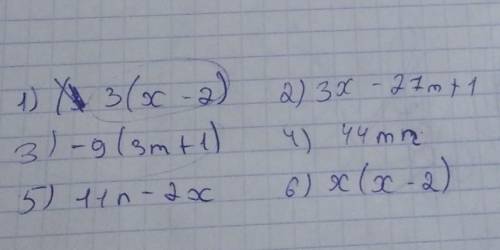 1) 3(x - 2) 2) 3x - 27m + 1
3) -9(3m + 1) 4) 44mn
5) 11n - 2x 6) x(x - 2)